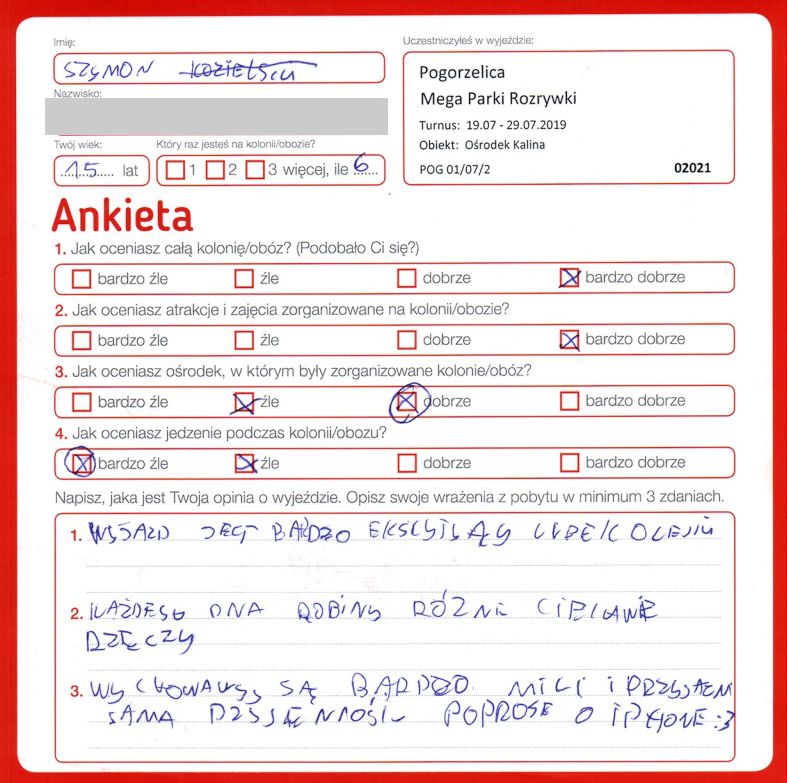 Imię:
SZYMON
Nazwisko:
Twój wiek:
15 lat
Który raz jesteś na kolonii/obozie?
1 2 3 więcej, ile 6
Uczestniczyłeś w wyjeździe:
Pogorzelica
Mega Parki Rozrywki
Turnus: 19.07 - 29.07.2019
Obiekt: Ośrodek Kalina
POG 01/07/2 02021
Ankieta
1. Jak oceniasz całą kolonię/obóz? (Podobało Ci się?)
bardzo źle źle dobrze bardzo dobrze
2. Jak oceniasz atrakcje i zajęcia zorganizowane na kolonii/obozie?
bardzo źle źle dobrze bardzo dobrze
3. Jak oceniasz ośrodek, w którym były zorganizowane kolonie/obóz?
bardzo źle źle dobrze bardzo dobrze
4. Jak oceniasz jedzenie podczas kolonii/obozu?
bardzo źle źle dobrze bardzo dobrze
Napisz, jaka jest Twoja opinia o wyjeździe. Opisz swoje wrażenia z pobytu w minimum 3 zdaniach.
1. WYJAZD JEST BARDZO
2. KAŻDEGO DNA ROBIMY RÓŻNE CIEKAWE
RZECZY
3. WYCHOWAWCY SĄ BARDZO MILI I
SAMA POPROSZE O IPHONE :3